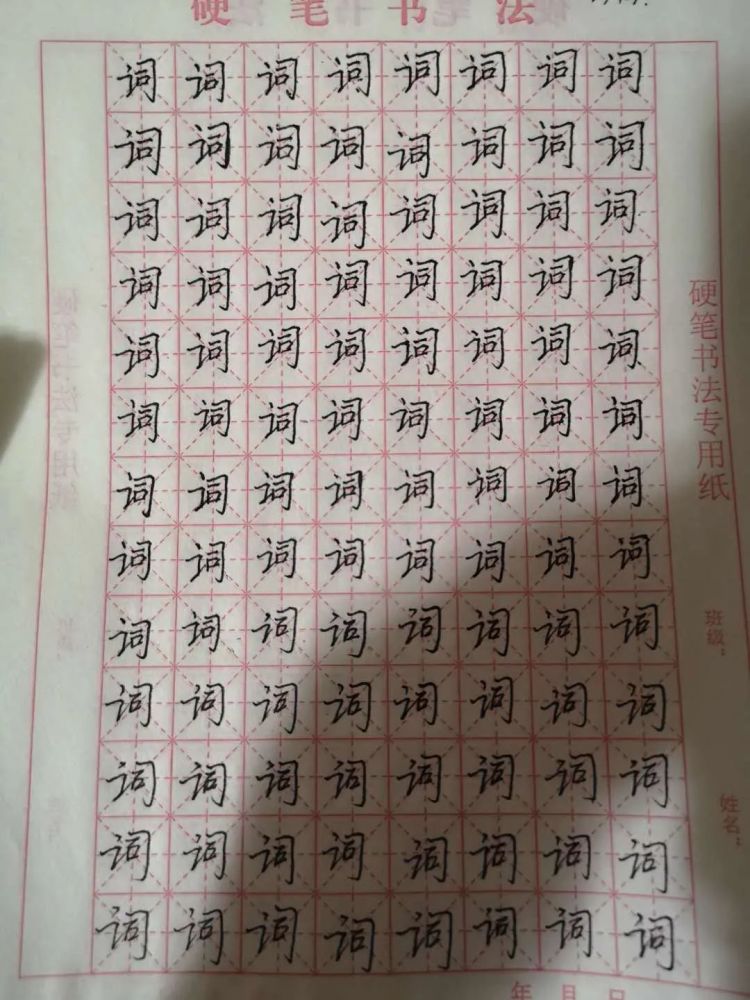 硬笔书法
词词词词词词词词
词词词词词词词词
词词词词词词词词
词词词词词词词词
词词词词词词词词
词词词词词词词词
词词词词词词词词
词词词词词词词词
词词词词词词词词
词词词词词词词词
词词词词词词词词
词词词词词词词词
词词词词词词词词
硬笔书法专用纸
班级：
姓名：
年月日